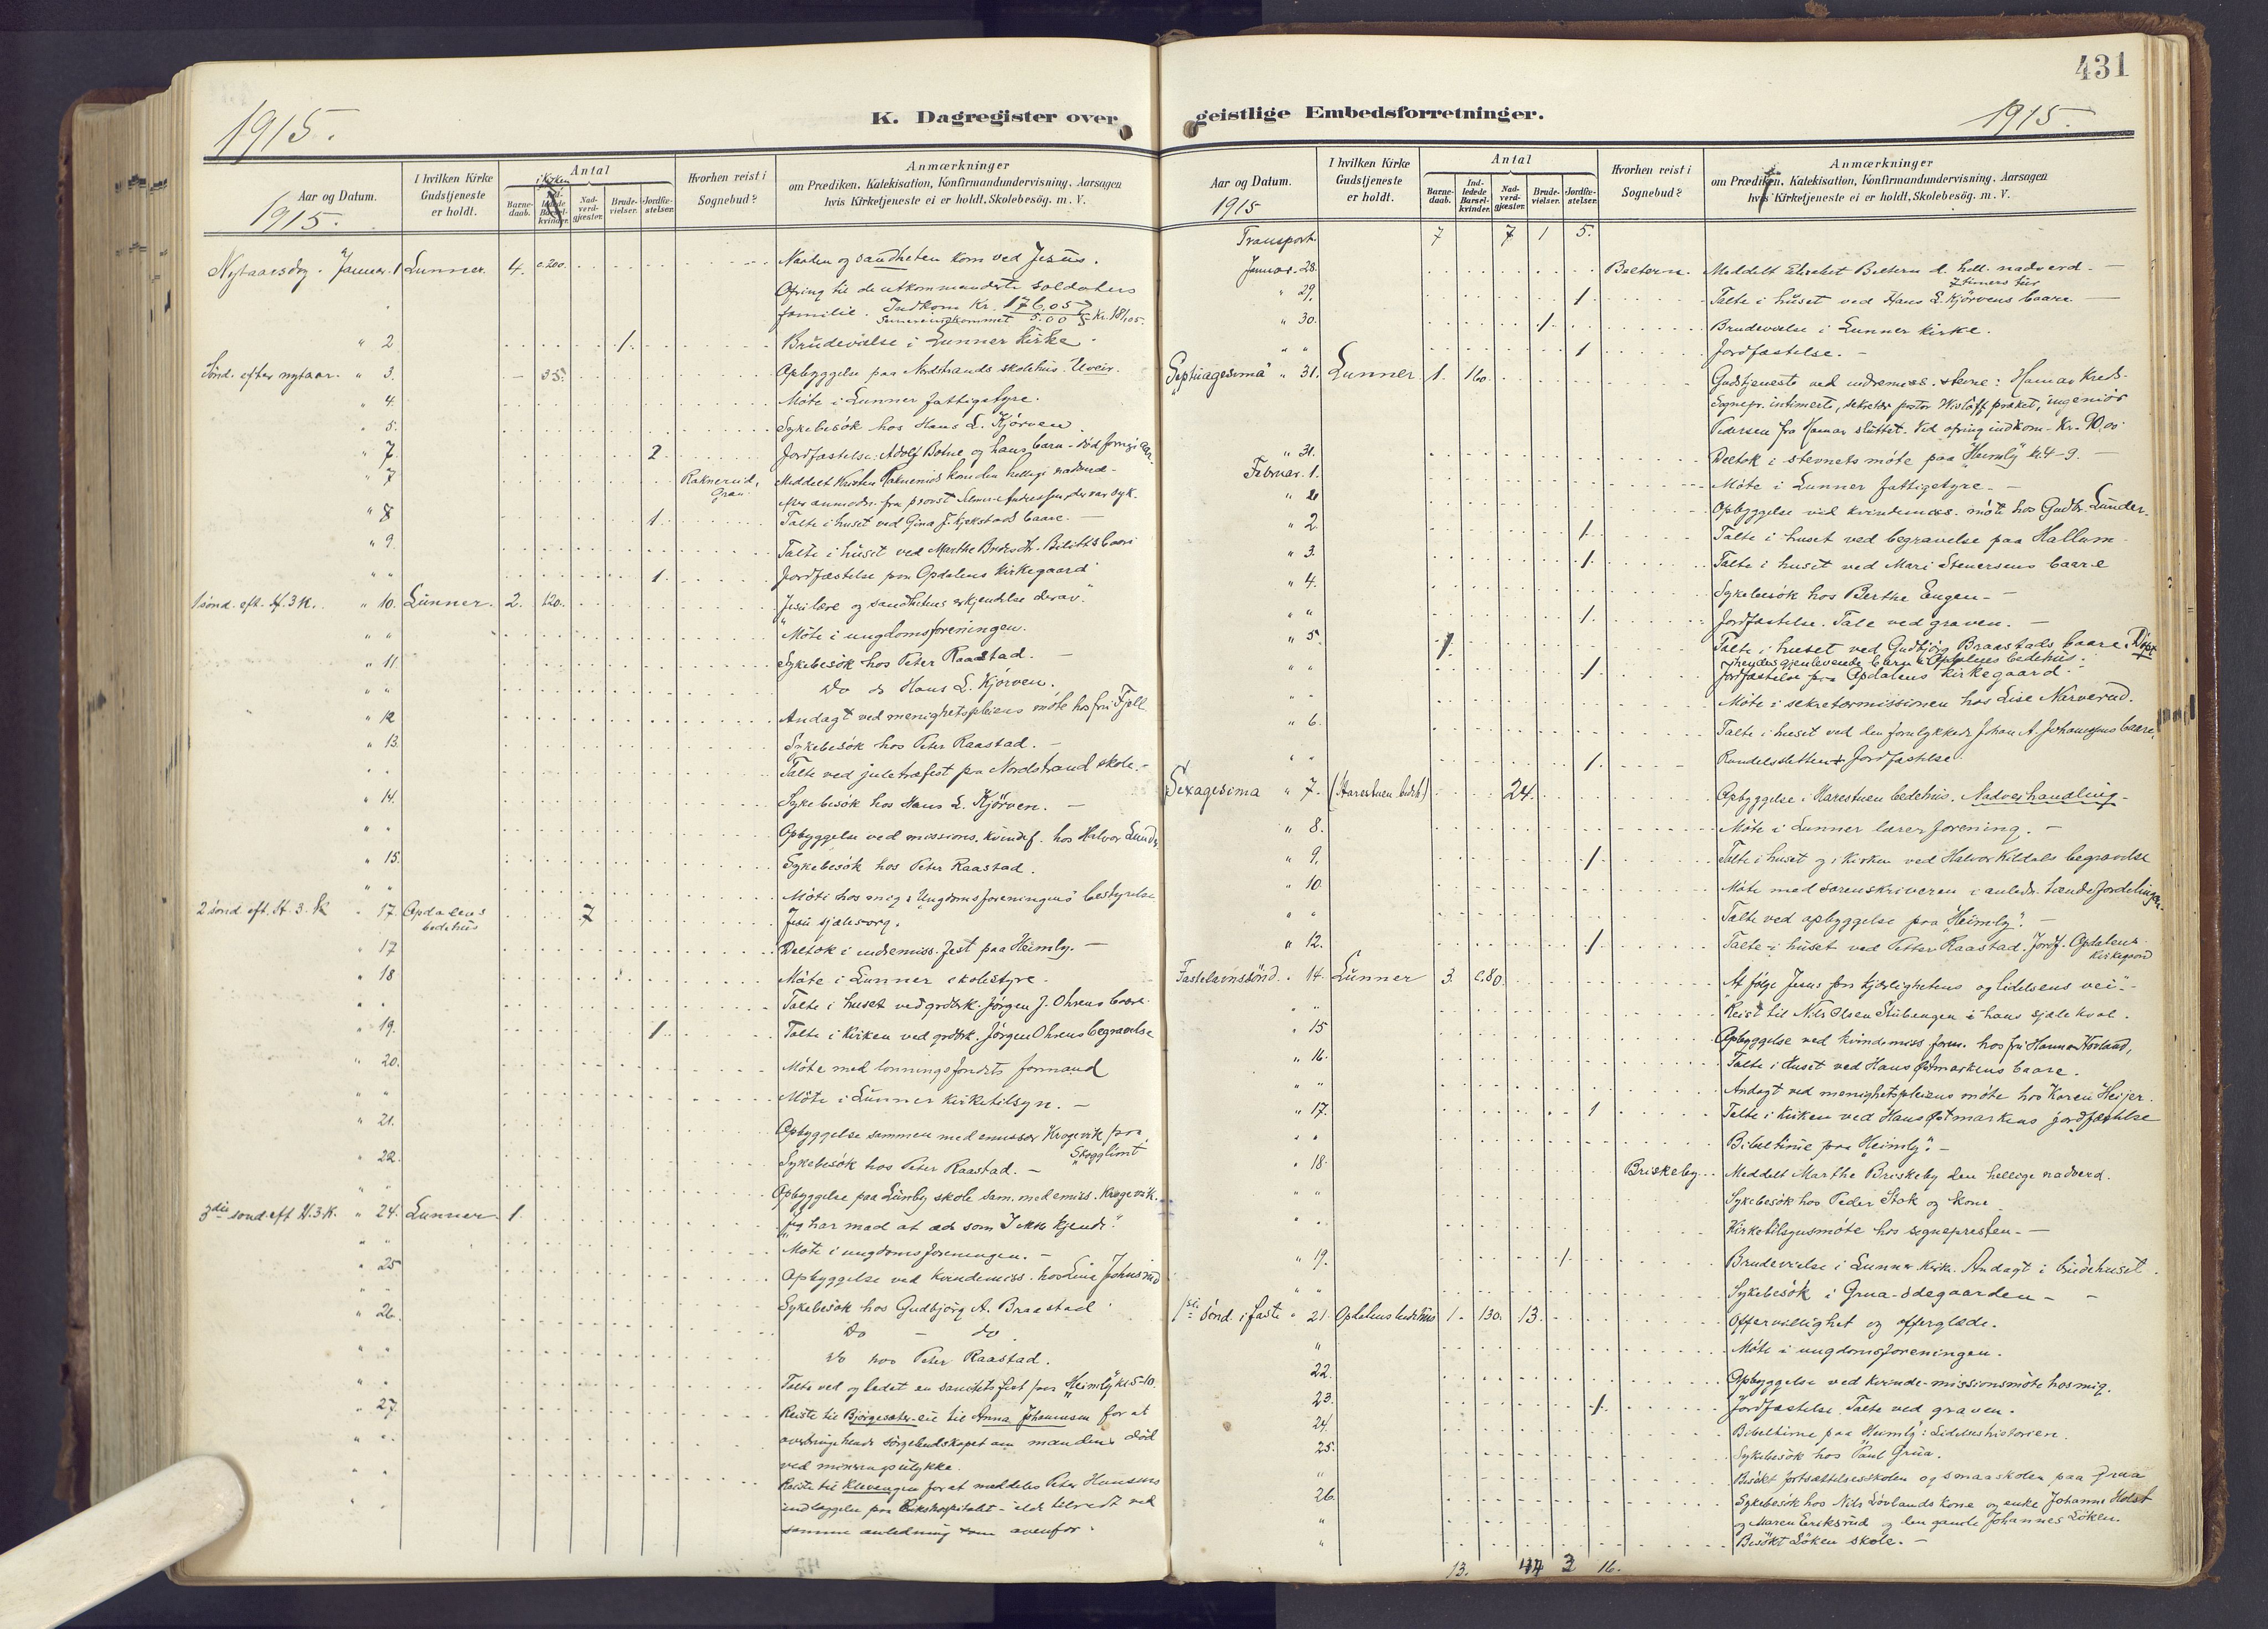 431
K. Dagregister over geistlige Embedsforretninger.
1915.
1915.
Aar og Datum.
1915.
I hvilken Kirke Gudstjeneste er holdt.
Antal
Barne-daab.
i kirken
Nad-verd-gjæster.
Brude-vielser.
Jordfæ-stelser.
Hvorhen reist i Sognebud?
Anmærkninger
om Prædiken, Katekisation, Konfirmandundervisning, Aarsagen
hvis Kirketjeneste ei er holdt, Skolebesög. m. V.
Nytaarsdag. Januar. 1 Lunner. 4. c.200. Naaden og sandheten kom ved Jesus.
Ofring til de utkommanderte soldaters
familie. Indkom Kr. 176,05
Senere indkommet 5.00 Kr. 181,05.
" 2 1. Brudevielse i Lunner kirke.
Sönd. efter nytaar. " 3. 35. Opbyggelse paa Nordstrands skolehus. Uveir.
" 4. Möte i Lunner fattigstyre.
" 5. Sykebesök hos Hans L. Kjörven.
" 7. 2. Jordfæstelse: Adolf Botne og hans barn
" 7 Raknerud, Gran Meddelt
efter anmodn. fra provst der var syk.
" 8 1. Talte i huset ved Gina J. baare. —
" 9. Talte i huset ved Marthe baare
" " 1. Jordfæstelse paa Opdalens kirkegaard
1 sönd. eft. H. 3 K. " 10. Lunner. 2. 120. Jesu lære og sandhetens erkjendelse derav.
" " Möte i ungdomsforeningen.
" 11. Sykebesök hos Peter Raastad. —
" " Do do Hans L. Kjörven.
" 12 Andagt ved menighetspleiens möte hos fru Fjell
" 13. Sykebesök hos Peter Raastad. —
" " Talte ved juletræfest paa Nordstrand skole. -
" 14. Sykebesök hos Hans L. Kjörven. —
" " Opbyggelse ved missions. kvindef. hos Halvor Lunder
" 15. Sykebesök hos Peter Raastad.
" " Möte hos mig i Ungdomsforeningens bestyrelse
2 sönd eft. H. 3. K " 17. Opdalens bedehus 7 Jesu sjælesorg.
" 17 Deltok i indremiss. fest paa Heimly. —
" 18 Möte i Lunner skolestyre.
" " Talte i huset ved grdbrk. Jörgen J. Ohrens baare.
" 19. 1. Talte i kirken ved grdbrk. Jörgen Ohrens begravelse
" 20. Möte med lonningsfondets formand
" " Möte i Lunner kirketilsyn. —
" 21. Opbyggelse sammen med emissær Krogevik paa
Skogglimt
" 22. Sykebesök hos Peter Raastad. —
" " Opbyggelse paa Lunby skole sam. med emiss. Krogevik.
3die sond. eft H. 3 K. " 24. Lunner. 1. Jeg har mad at æde som I ikke kjende."
" " Möte i ungdomsforeningen. —
" 25 Opbyggelse ved kvindemiss. hos Line Johnsrud
" " Sykebesök hos Gudbjörg A. Braastad
" 26. Do — do
" " do hos Peter Raastad.
" " Talte ved og ledet en sanitetsfest paa "Heimly" kl 5-10.
" 27. Reiste til Bjørgesæter-eie til Anna Johannsen for at
overbringe hende sörgebudskapet om mandens död
ved minesprængulykke.
Reiste til Klevengen for at meddeles Peter Hansens
indlæggelse paa Rikshospitalet - ilde tilredt ved
samme anledning som ovenfor.
Aar og Datum.
1915
I hvilken Kirke Gudstjeneste er holdt.
Antal
Barne-daab.
Ind-ledede Barsel-kvinder.
Nad-verd-gjæster.
Brude-vielser.
Jordfæ-stelser.
Hvorhen reist i Sognebud?
Anmærkninger
om Prædiken, Katekisation, Konfirmandundervisning, Aarsagen
hvis Kirketjeneste ei er holdt, Skolebesög. m. V.
Transport. 7 7 1 5.
Januar. 28. Beltern. Meddelt Elisebet Beltern d. hell. nadverd. —
7 timers tur
" 29. 1. Talte i huset ved Hans L. Kjörvens baare. —
" 30. 1. Brudevielse i Lunner kirke.
" " 1 Jordfæstelse. —
Septuagesima " 31. Lunner 1. 160. Gudstjeneste ved indremiss. stevne: Hamar Kreds.
Sognepr. intimerte, sekretær pastor Wislöff præket, ingeniör
Pedersen fra Hamar sluttet. Ved ofring indkom Kr. 90.00.
" 31. Deltok i stevnets möte paa "Heimly" kl. 4-9. —
Februar. 1. Möte i Lunner fattigstyre. —
" 2 Opbyggelse ved kvindemiss. möte hos Gudbr. Lunder.
" 2. 1. Talte i huset ved begravelse paa Hallum
" 3. 1. Talte i huset ved Mari Stenersens baare
" 4. Sykebesök hos Berthe Engen. —
" " 1. Jordfæstelse. Tale ved graven. —
" 5. 1. Talte i huset ved Gudbjörg Braastads baare. Döpt
hendes gjenlevende barn i Opdalens bedehus.
" " 1. Jordfæstelse paa Opdalens kirkegaard.
" " Möte i sekretærmissionen hos Lise Narverud.
" 6. Talte i huset ved den forulykkede Johan A. Johannsens baare.
" " 1. Jordfæstelse.
Sexagesima " 7. (Harestuen bedeh.) 24. Opbyggelse i Harestuen bedehus. Nadverhandling -
" 8. Möte i Lunner lærerforening. —
" 9. 1. Talte i huset og i kirken ved Halvor Kildals begravelse
" 10. Möte med sorenskriveren i anledn. tiendefordelingen.
" " Talte ved opbyggelse paa "Heimly". —
" 12. 1. Talte i huset ved Petter Raastad. Jordf. Opdalens
kirkegaard
Fastelavnssönd. " 14. Lunner 3. c.80. At fölge Jesus paa kjærlighetens og lidelsens vei". -
" " Reist til Nils Olsen Stubengen i hans sjælekval.
" 15 Opbyggelse ved kvindemiss. foren. hos fru Hanna Hovland,
" 16. Talte i huset ved Hans Østmarkens baare.
" " Andagt ved menighetspleiens möte hos Karen Heijer.
" 17. 1 Talte i kirken ved Hans Østmarkens jordfæstelse
" " Bibeltime paa "Heimly". —
" 18. Briskeby. Meddelt Marthe Briskeby den hellige nadverd.
" " Sykebesök hos Peder Stok og kone
" " Kirketilsynsmöte hos sognepresten. —
" 19. 1. Brudevielse i Lunner kirke. Andagt i brudehuset.
" " Sykebesök i Grua-ödegaarden - -
1ste sönd. i faste " 21. Opdalens bedehus 1. 130. 13. Offervillighet og offerglæde.
" Möte i ungdomsforeningen.
22. Opbyggelse ved kvinde-missionsmöte hos mig.
23. 1. Jordfæstelse. Talte ved graven.
24. Bibeltime paa Heimly: Lidelseshistorien.
25. Sykebesök hos Paul Grua.
" Besökt fortsættelsesskolen og smaaskolen paa Grua
26. Sykebesök hos Nils Lövlands kone og enke Johanne Holst
" og Maren Eeriksrud og den gamle Johannes Löken.
" Besökt Löken skole. —
13. 44 3 16.